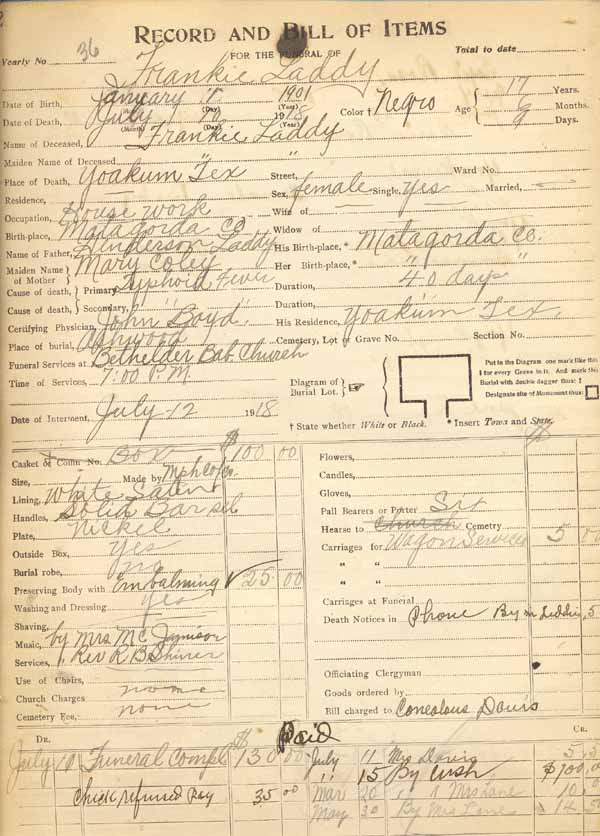 RECORD AND BILL OF ITEMS
FOR THE FUNERAL OF
Total to date
Yearly No 36
Frankie Laddy
Date of Birth, January 1901
(Year)
Color † Negro Age 17 Years.
Months.
Date of Death, July 1918
(Month) (Day) (Year)
9 Days.
Name of Deceased, Frankie Laddy
Maiden Name of Deceased " "
Place of Death, Yoakum Tex Street, Ward No.
Residence, Sex, female Single, yes Married,
Occupation, House work Wife of
Birth-place, Matagorda Co Widow of
Name of Father, Anderson Laddy His Birth-place, * Matagorda Co.
Maiden Name of Mother Mary Coley Her Birth-place, * " "
Cause of death, Primary, Typhoid Fever Duration, 40 days
Cause of death, Secondary, " " Duration, "
Certifying Physician, John "Boyd" His Residence, Yoakum Tex.
Place of burial, Ashwood Cemetery, Lot or Grave No. Section No.
Funeral Services at Bethelder Bab. Church
Time of Services, 7:00 P.M
Diagram of Burial Lot.
Put in the Diagram one mark like this
‡ for every Grave in it. And mark this
Burial with double dagger thus: ‡
Designate site of Monument thus:
Date of Interment, July 12 1918
† State whether White or Black. * Insert Town and State.
Casket or Coffin No. Box $100 00
Size, Made by
Lining, White Satin
Handles, Solid Bar sil
Plate, Nickel
Outside Box, Yes
Burial robe, no
Preserving Body with Embalming ✓ 25 00
Washing and Dressing yes
Shaving,
Music, by Mrs Mc Jimison
Services, Rev R B Shiner
Use of Chairs,
Church Charges none
Cemetery Fee, none
Flowers,
Candles,
Gloves,
Pall Bearers or Porter Six
Hearse to Church Cemetry
Carriages for Wagon Services 5 00
" "
" "
Carriages at Funeral
Death Notices in Phone By 5
Officiating Clergyman
Goods ordered by
Bill charged to Conealous Davis
DR. Paid CR.
July 10 Funeral Compl $130 00 July 11 Mrs Davis 5
" 15 By Cash $100
Chick refused pay 35 00 Mar 20 " " Mrs Lane 10
May 30 By Mrs Lane 14